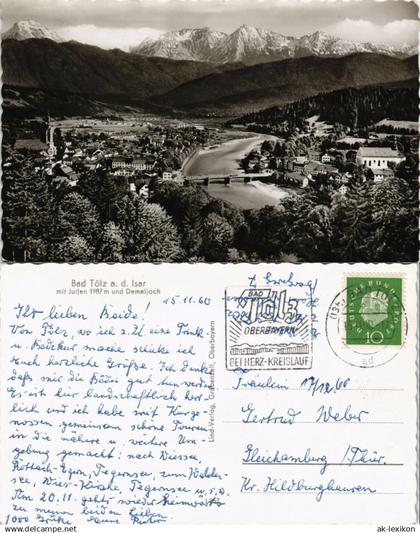 Bad Tölz a. d. Isar
mit Juifen 1987 m und Demeljoch
Lind-Verlag, Grabenstätt, Oberbayern
15.11.60
Ihr lieben Beide!
Von Tölz, wo ich z. Zt. eine Trink-
u. Badekur mache schicke ich
Euch herzliche Grüße. Ich denke
daß mir die Bäder gut tun werden.
Es ist hier landschaftlich herr-
lich und ich habe mit Kurge-
nossen gemeinsam schöne Touren
in die nähere u. weitere Um-
gebung gemacht: nach
Rottach-Egern, Tegernsee, zum Walchen-
see, Wies-Kirche, Tegernsee u.s.w.
Am 20.11. geht's wieder heimwärts
zu meinen beiden lieben.
1000 Grüße Eure
BAD
Tölz
OBERBAYERN
BEI HERZ-KREISLAUF
DEUTSCHE BUNDESPOST
10
Fräulein
17/12 60
Gertrud Weber
Gleichamberg / Thür.
Kr. Hildburghausen
www.ak-ansichtskarten.de
ak-lexikon